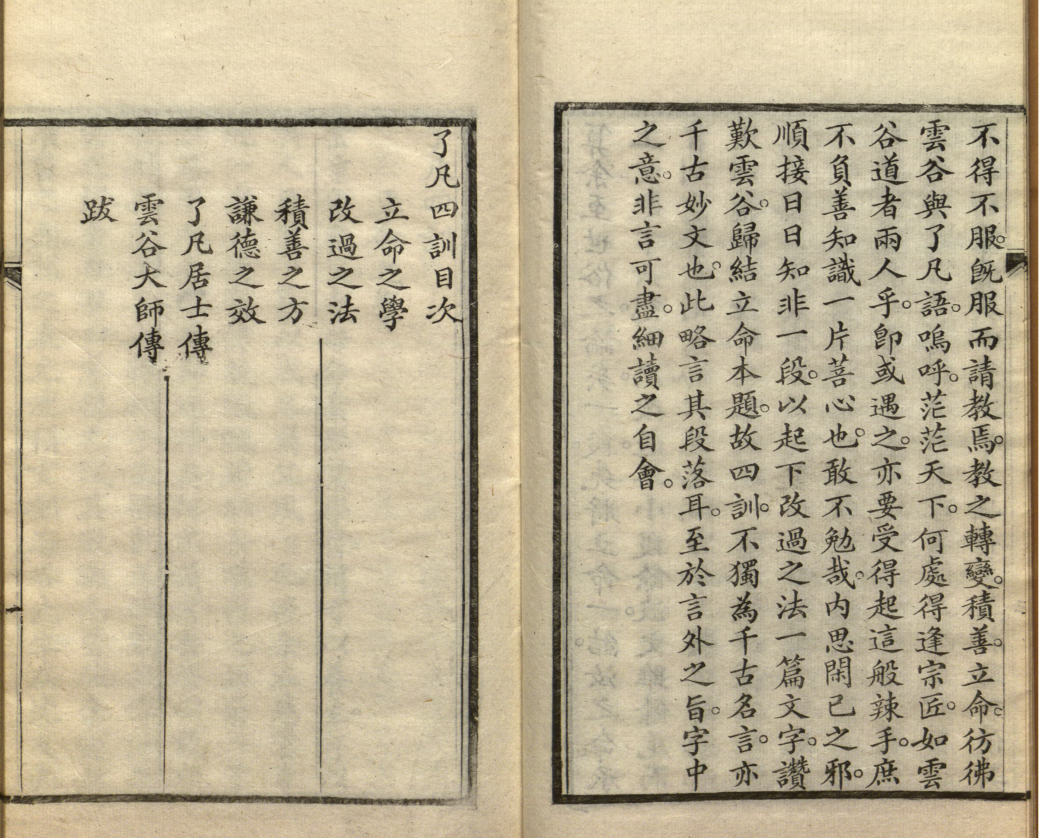 不得不服。旣服而請教焉。教之轉變。積善。立命。彷彿
雲谷與了凡語。嗚呼。茫茫天下。何處得逢宗匠。如雲
谷道者兩人乎。卽或遇之。亦要受得起這般辣手。庶
不負善知識一片菩心也。敢不勉哉。内思閑己之邪。
順接日日知非一段。以起下改過之法一篇文字。讚
歎雲谷。歸結立命本題。故四訓。不獨為千古名言。亦
千古妙文也。此略言其段落耳。至於言外之旨。字中
之意。非言可盡。細讀之自會。
了凡四訓目次
立命之學
改過之法
積善之方
謙德之效
了凡居士傳
雲谷大師傳
跋